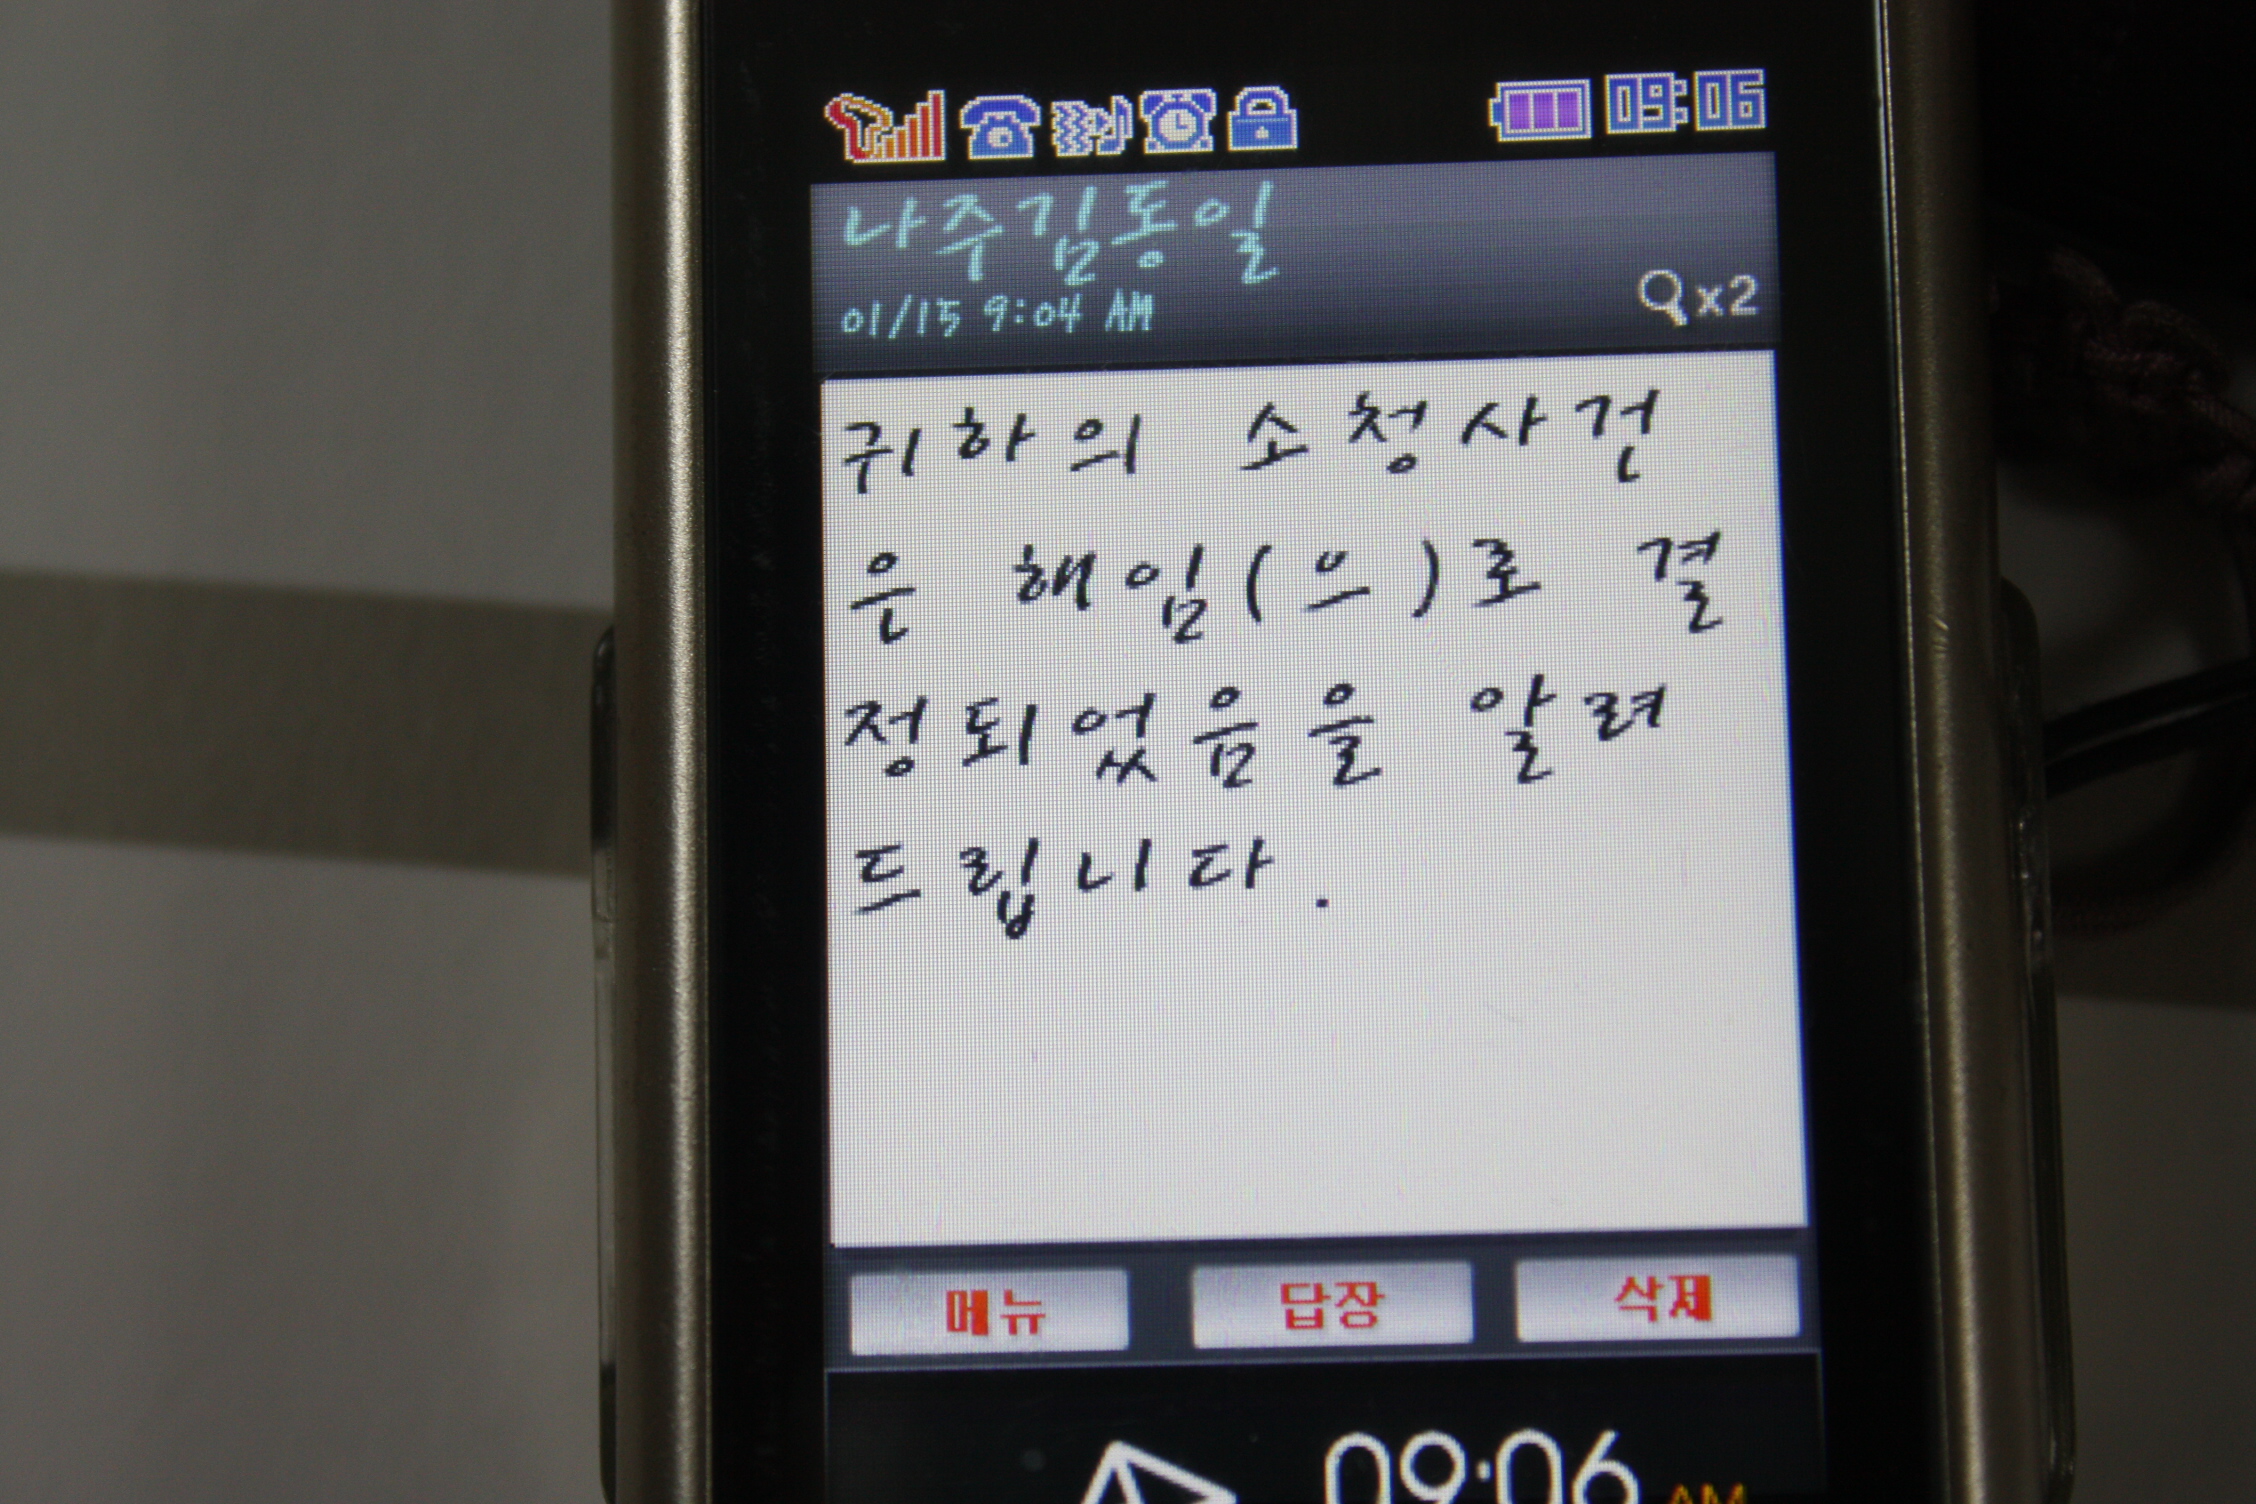 09:06
나주김동일
01/15 9:04 AM
x2
귀하의 소청사건
은 해임(으)로 결
정되었음을 알려
드립니다.
메뉴 답장 삭제
09:06 AM